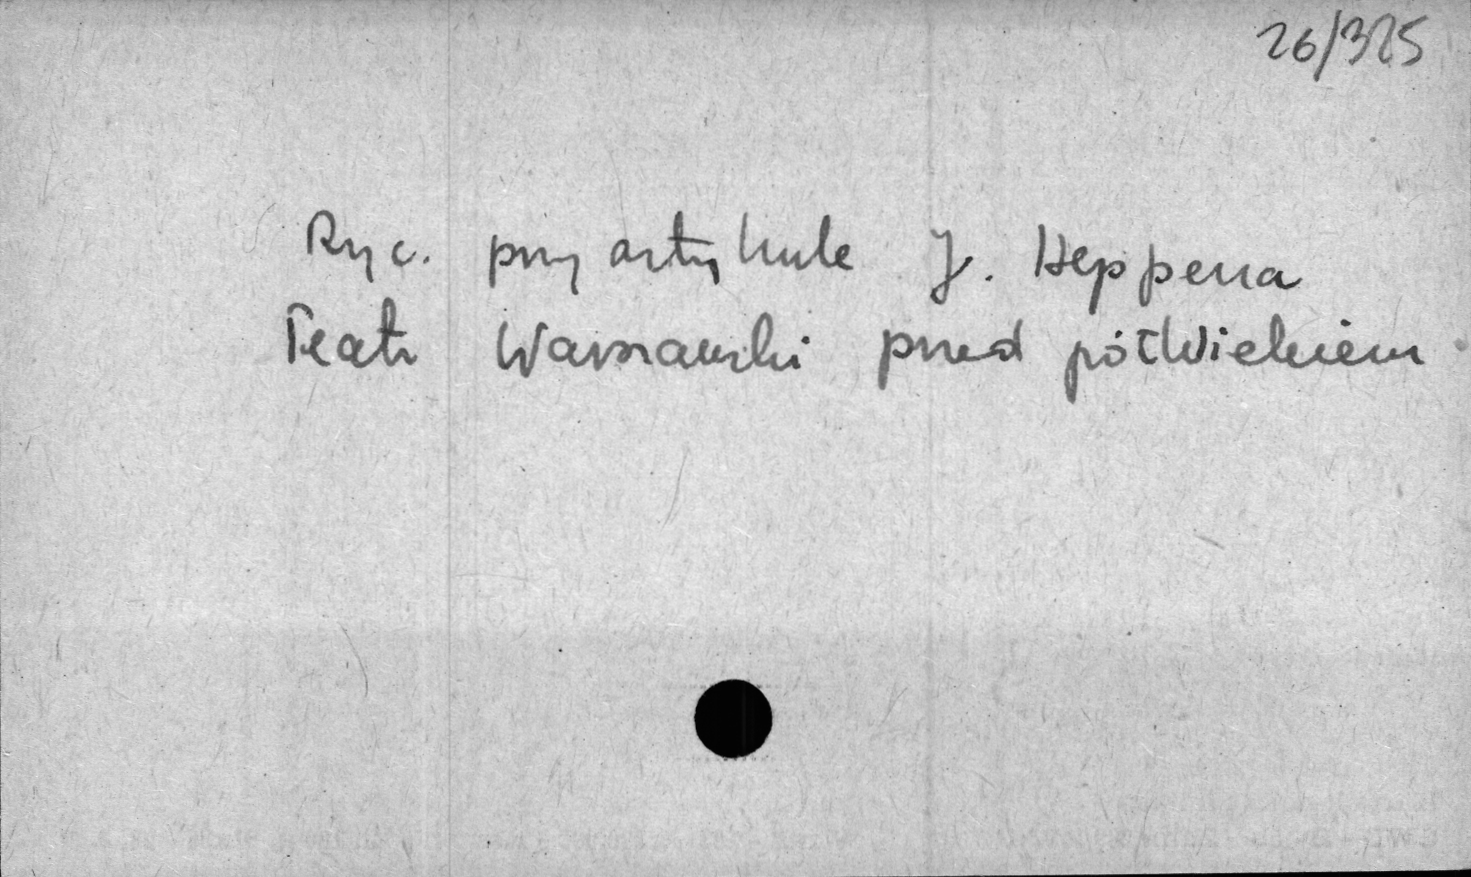 26/325
Ryc. przy artykule J. Heppena
Teatr Warszawski przed półwiekiem